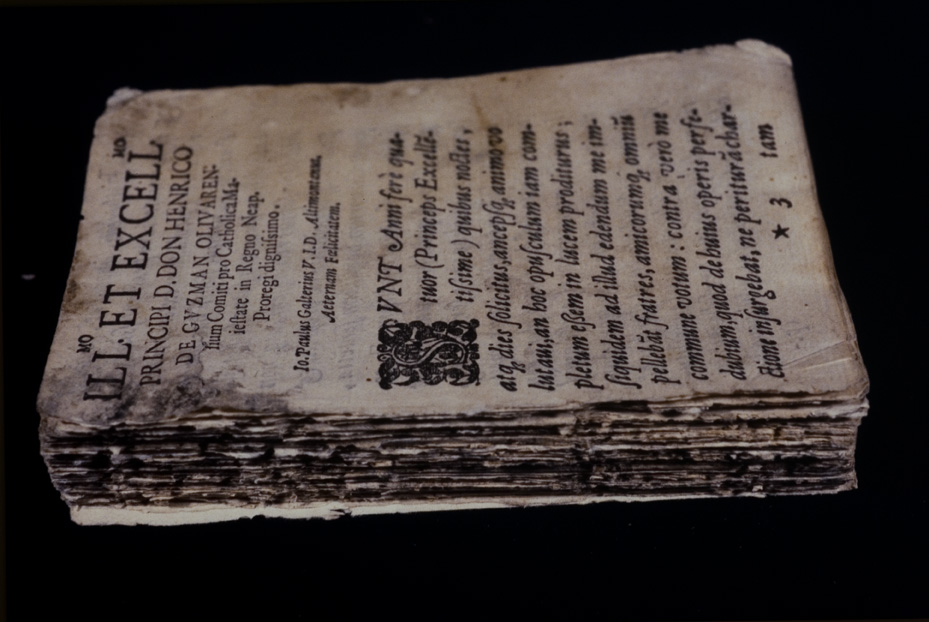 ILL.MO ET EXCELL.MO
PRINCIPI D. DON HENRICO
DE GVZMAN OLIVAREN-
sium Comiti pro Catholica Ma-
iestate in Regno Neap.
Proregi dignissimo.
Io. Paulus Galterius V.I.D. Altimontanus,
Aeternam Felicitatem.
SVNT Anni ferè qua-
tuor (Princeps Excellē-
tissime) quibus noctes,
atq; dies solicitus, ancepsq; animo uo
lutaui, an hoc opusculum iam com-
pletum essem in lucem proditurus;
siquidem ad illud edendum me im-
pellebāt fratres, amicorumq; omniū
commune votum: contra verò me
dubium, quod de huius operis perfe-
ctione insurgebat, ne periturā char-
★ 3 tam